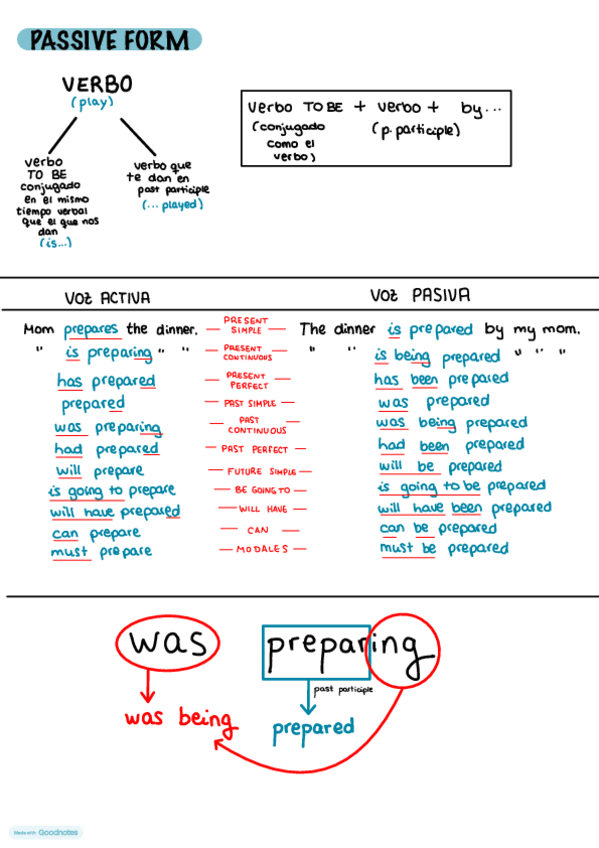 PASSIVE FORM
VERBO
(play)
verbo
TO BE
conjugado
en el mismo
tiempo verbal
que el que nos
dan
(is...)
verbo que
te dan en
past participle
(... played)
verbo TO BE + verbo + by...
(conjugado
como el
verbo)
(p. participle)
VOZ ACTIVA
VOZ PASIVA
Mom prepares the dinner. — PRESENT SIMPLE — The dinner is prepared by my mom.
" is preparing " " — PRESENT CONTINUOUS — " " is being prepared " " "
has prepared — PRESENT PERFECT — has been prepared
prepared — PAST SIMPLE — was prepared
was preparing — PAST CONTINUOUS — was being prepared
had prepared — PAST PERFECT — had been prepared
will prepare — FUTURE SIMPLE — will be prepared
is going to prepare — BE GOING TO — is going to be prepared
will have prepared — WILL HAVE — will have been prepared
can prepare — CAN — can be prepared
must prepare — MODALES — must be prepared
was preparing
past participle
was being
prepared
Made with Goodnotes